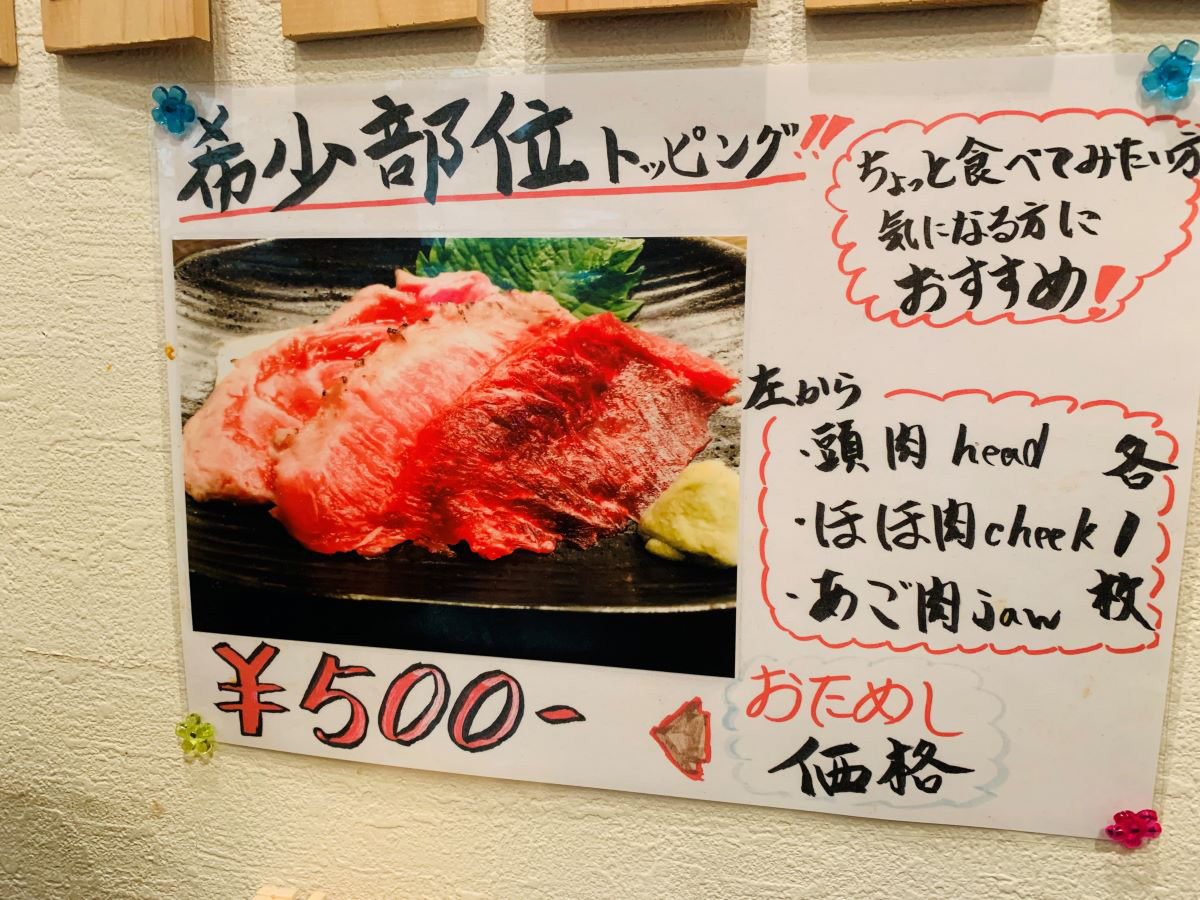 希少部位トッピング!!
ちょっと食べてみたい方
気になる方に
おすすめ!
左から
・頭肉 head
・ほほ肉 cheek
・あご肉 jaw
各1枚
¥500-
おためし
価格